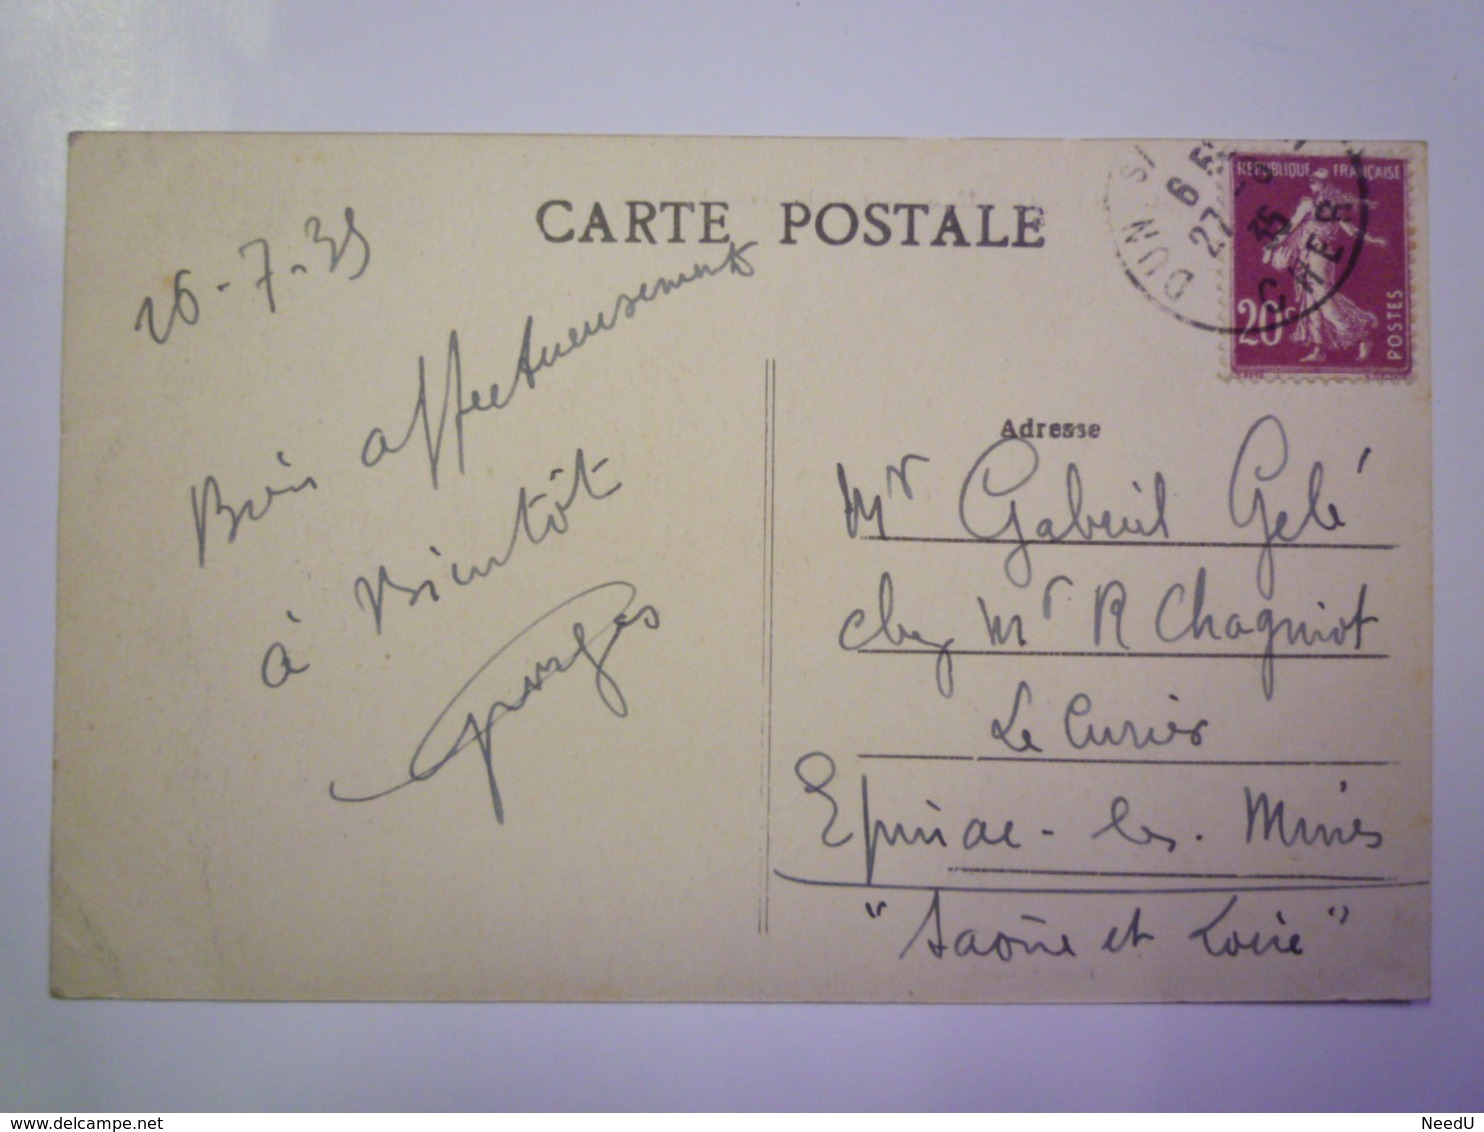 CARTE POSTALE
26-7-35
Bien affectueusement
à Bientôt
Georges
REPUBLIQUE FRANÇAISE
20c
POSTES
DUN S/
6
27
35
CHER
Adresse
Mr Gabriel Gelé
chez Mr R Chagniot
Le Curier
Epinac-les-Mines
"Saône et Loire"
delcampe.net
NeedU